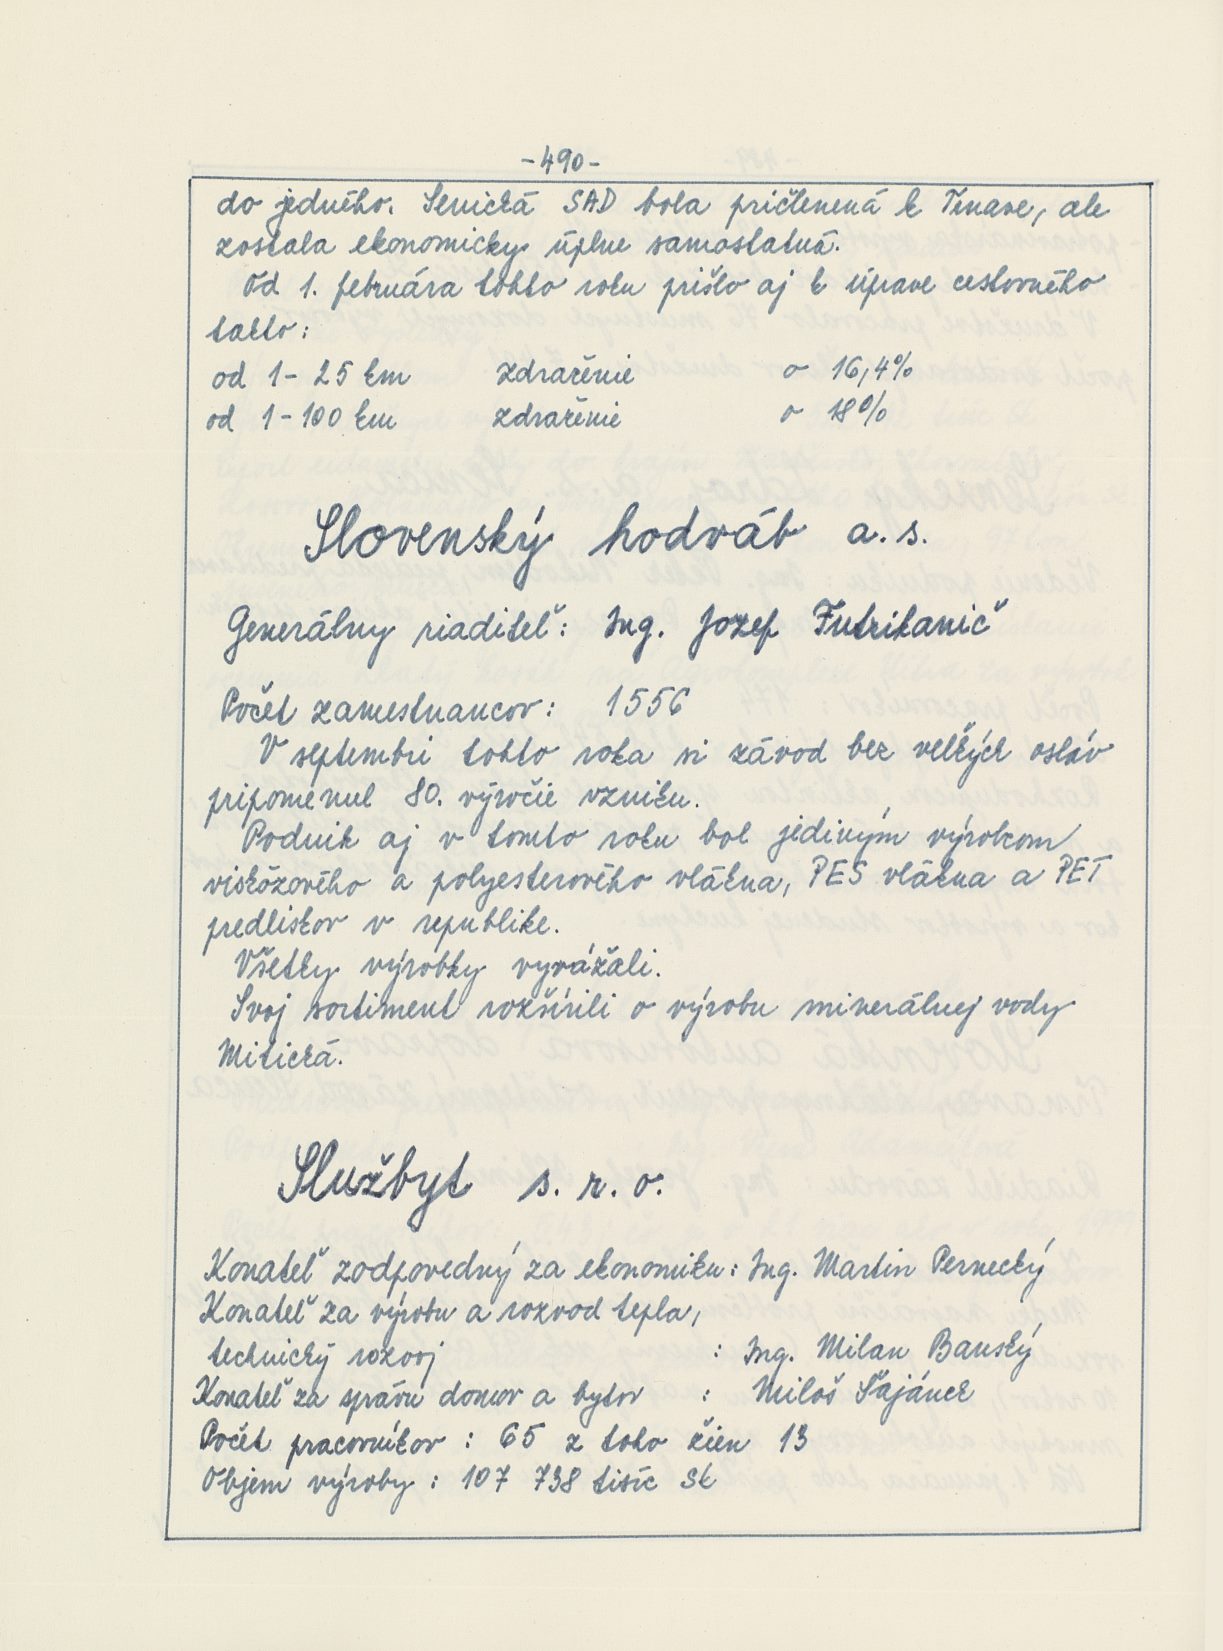 -490-
do jedného. Senická SAD bola pričlenená k Trnave, ale
zostala ekonomicky úplne samostatná.
Od 1. februára tohto roku prišlo aj k úprave cestovného
takto:
od 1-25 km zdraženie o 16,4%
od 1-100 km zdraženie o 18%
Slovenský hodváb a.s.
Generálny riaditeľ: Ing. Jozef Futrikanič
Počet zamestnancov: 1556
V septembri tohto roka si závod bez veľkých osláv
pripomenul 80. výročie vzniku.
Podnik aj v tomto roku bol jediným výrobcom
viskózového a polyesterového vlákna, PES vlákna a PET
predliskov v republike.
Všetky výrobky vyvážali.
Svoj sortiment rozšírili o výrobu minerálnej vody
Mitická.
Službyt s.r.o.
Konateľ zodpovedný za ekonomiku: Ing. Martin Pernecký
Konateľ za výrobu a rozvod tepla,
technický rozvoj : Ing. Milan Banský
Konateľ za správu domov a bytov : Miloš Šajánek
Počet pracovníkov : 65 z toho žien 13
Objem výroby : 107 738 tisíc Sk